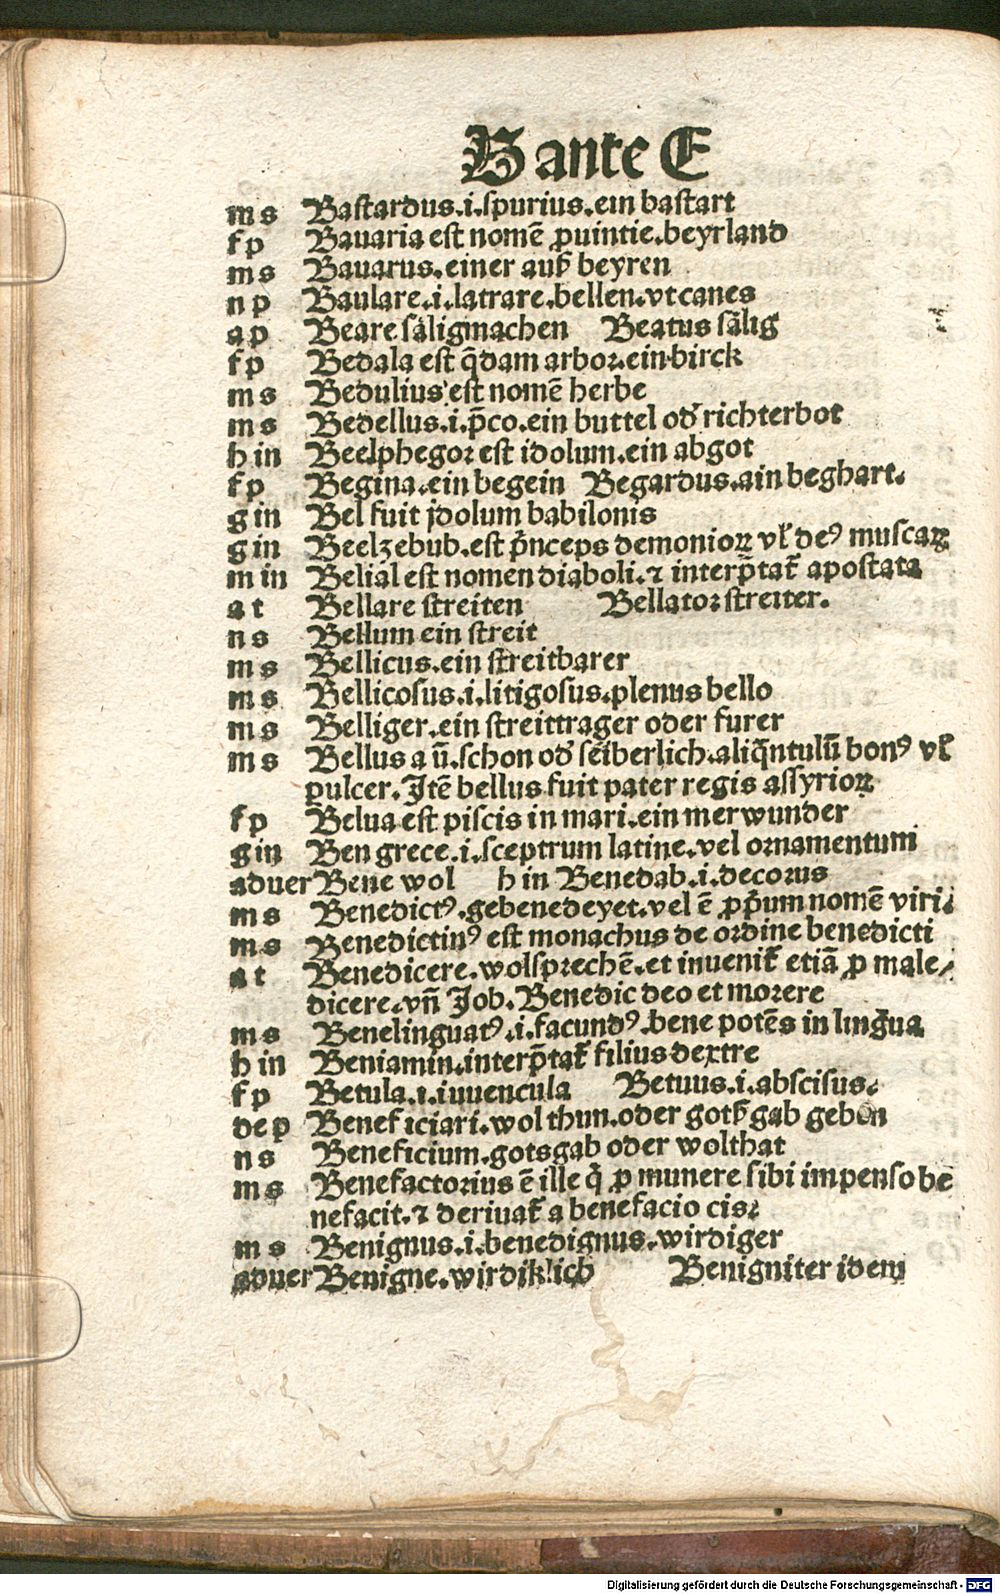 B ante E
m s Bastardus.i.spurius.ein bastart
f p Bauaria est nomē ꝓuintie.beyrland
m s Bauarus.einer auß beyren
n p Baulare.i.latrare.bellen.vt canes
a p Beare säligmachen Beatus sälig
f p Bedala est q̄dam arbor.ein birck
m s Bedulius est nomē herbe
m s Bedellus.i.p̄co.ein buttel od̓ richterbot
h in Beelphegor est idolum.ein abgot
f p Begina.ein begein Begardus.ain beghart.
g in Bel fuit jdolum babilonis
g in Beelzebub.est p̄nceps demonioꝝ vl̓ deꝰ muscaꝝ
m in Belial est nomen diaboli.⁊ interp̄tat̄ apostata
a t Bellare streiten Bellator streiter.
n s Bellum ein streit
m s Bellicus.ein streitbarer
m s Bellicosus.i.litigosus.plenus bello
m s Belliger.ein streittrager oder furer
m s Bellus a ū.schon od̓ seüberlich.aliq̄ntulū bonꝰ vl̓
pulcer.Itē bellus fuit pater regis assyrioꝝ
f p Belua est piscis in mari.ein merwunder
g in Ben grece.i.sceptrum latine.vel ornamentum
aduer Bene wol h in Benedab.i.decorus
m s Benedictꝰ.gebenedeyet.vel ē ꝓp̄um nomē viri.
m s Benedictinꝰ est monachus de ordine benedicti
a t Benedicere.wolsprechē.et inuenit̄ etiā ꝓ male⸗
dicere.vn̄ Job.Benedic deo et morere
m s Benelinguatꝰ.i.facundꝰ.bene potēs in lingua
h in Beniamin.interp̄tat̄ filius dextre
f p Betula.i.iuuencula Betuus.i.abscisus.
de p Beneficiari.wol thun.oder gotßgab geben
n s Beneficium.gotsgab oder wolthat
m s Benefactorius ē ille q̇ ꝓ munere sibi impenso be
nefacit.⁊ deriuat̄ a benefacio cis.
m s Benignus.i.benedignus.wirdiger
aduer Benigne.wirdiklich Benigniter idem
Digitalisierung gefördert durch die Deutsche Forschungsgemeinschaft - DFG